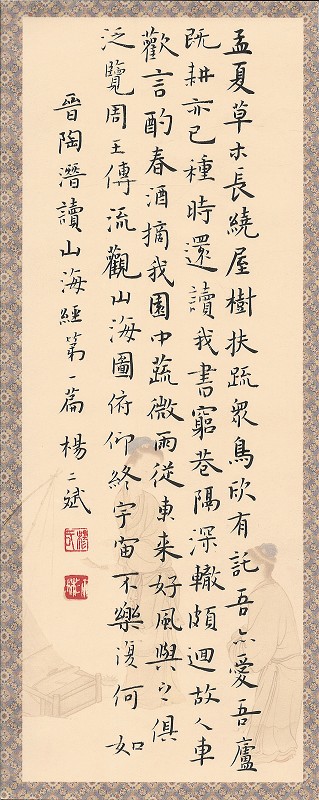 孟夏草木長繞屋樹扶疏衆鳥欣有託吾亦愛吾廬
既耕亦已種時還讀我書窮巷隔深轍頗迴故人車
歡言酌春酒摘我園中蔬微雨從東來好風與之俱
泛覽周王傳流觀山海圖俯仰終宇宙不樂復何如
晉陶潛讀山海經第一篇 楊二斌